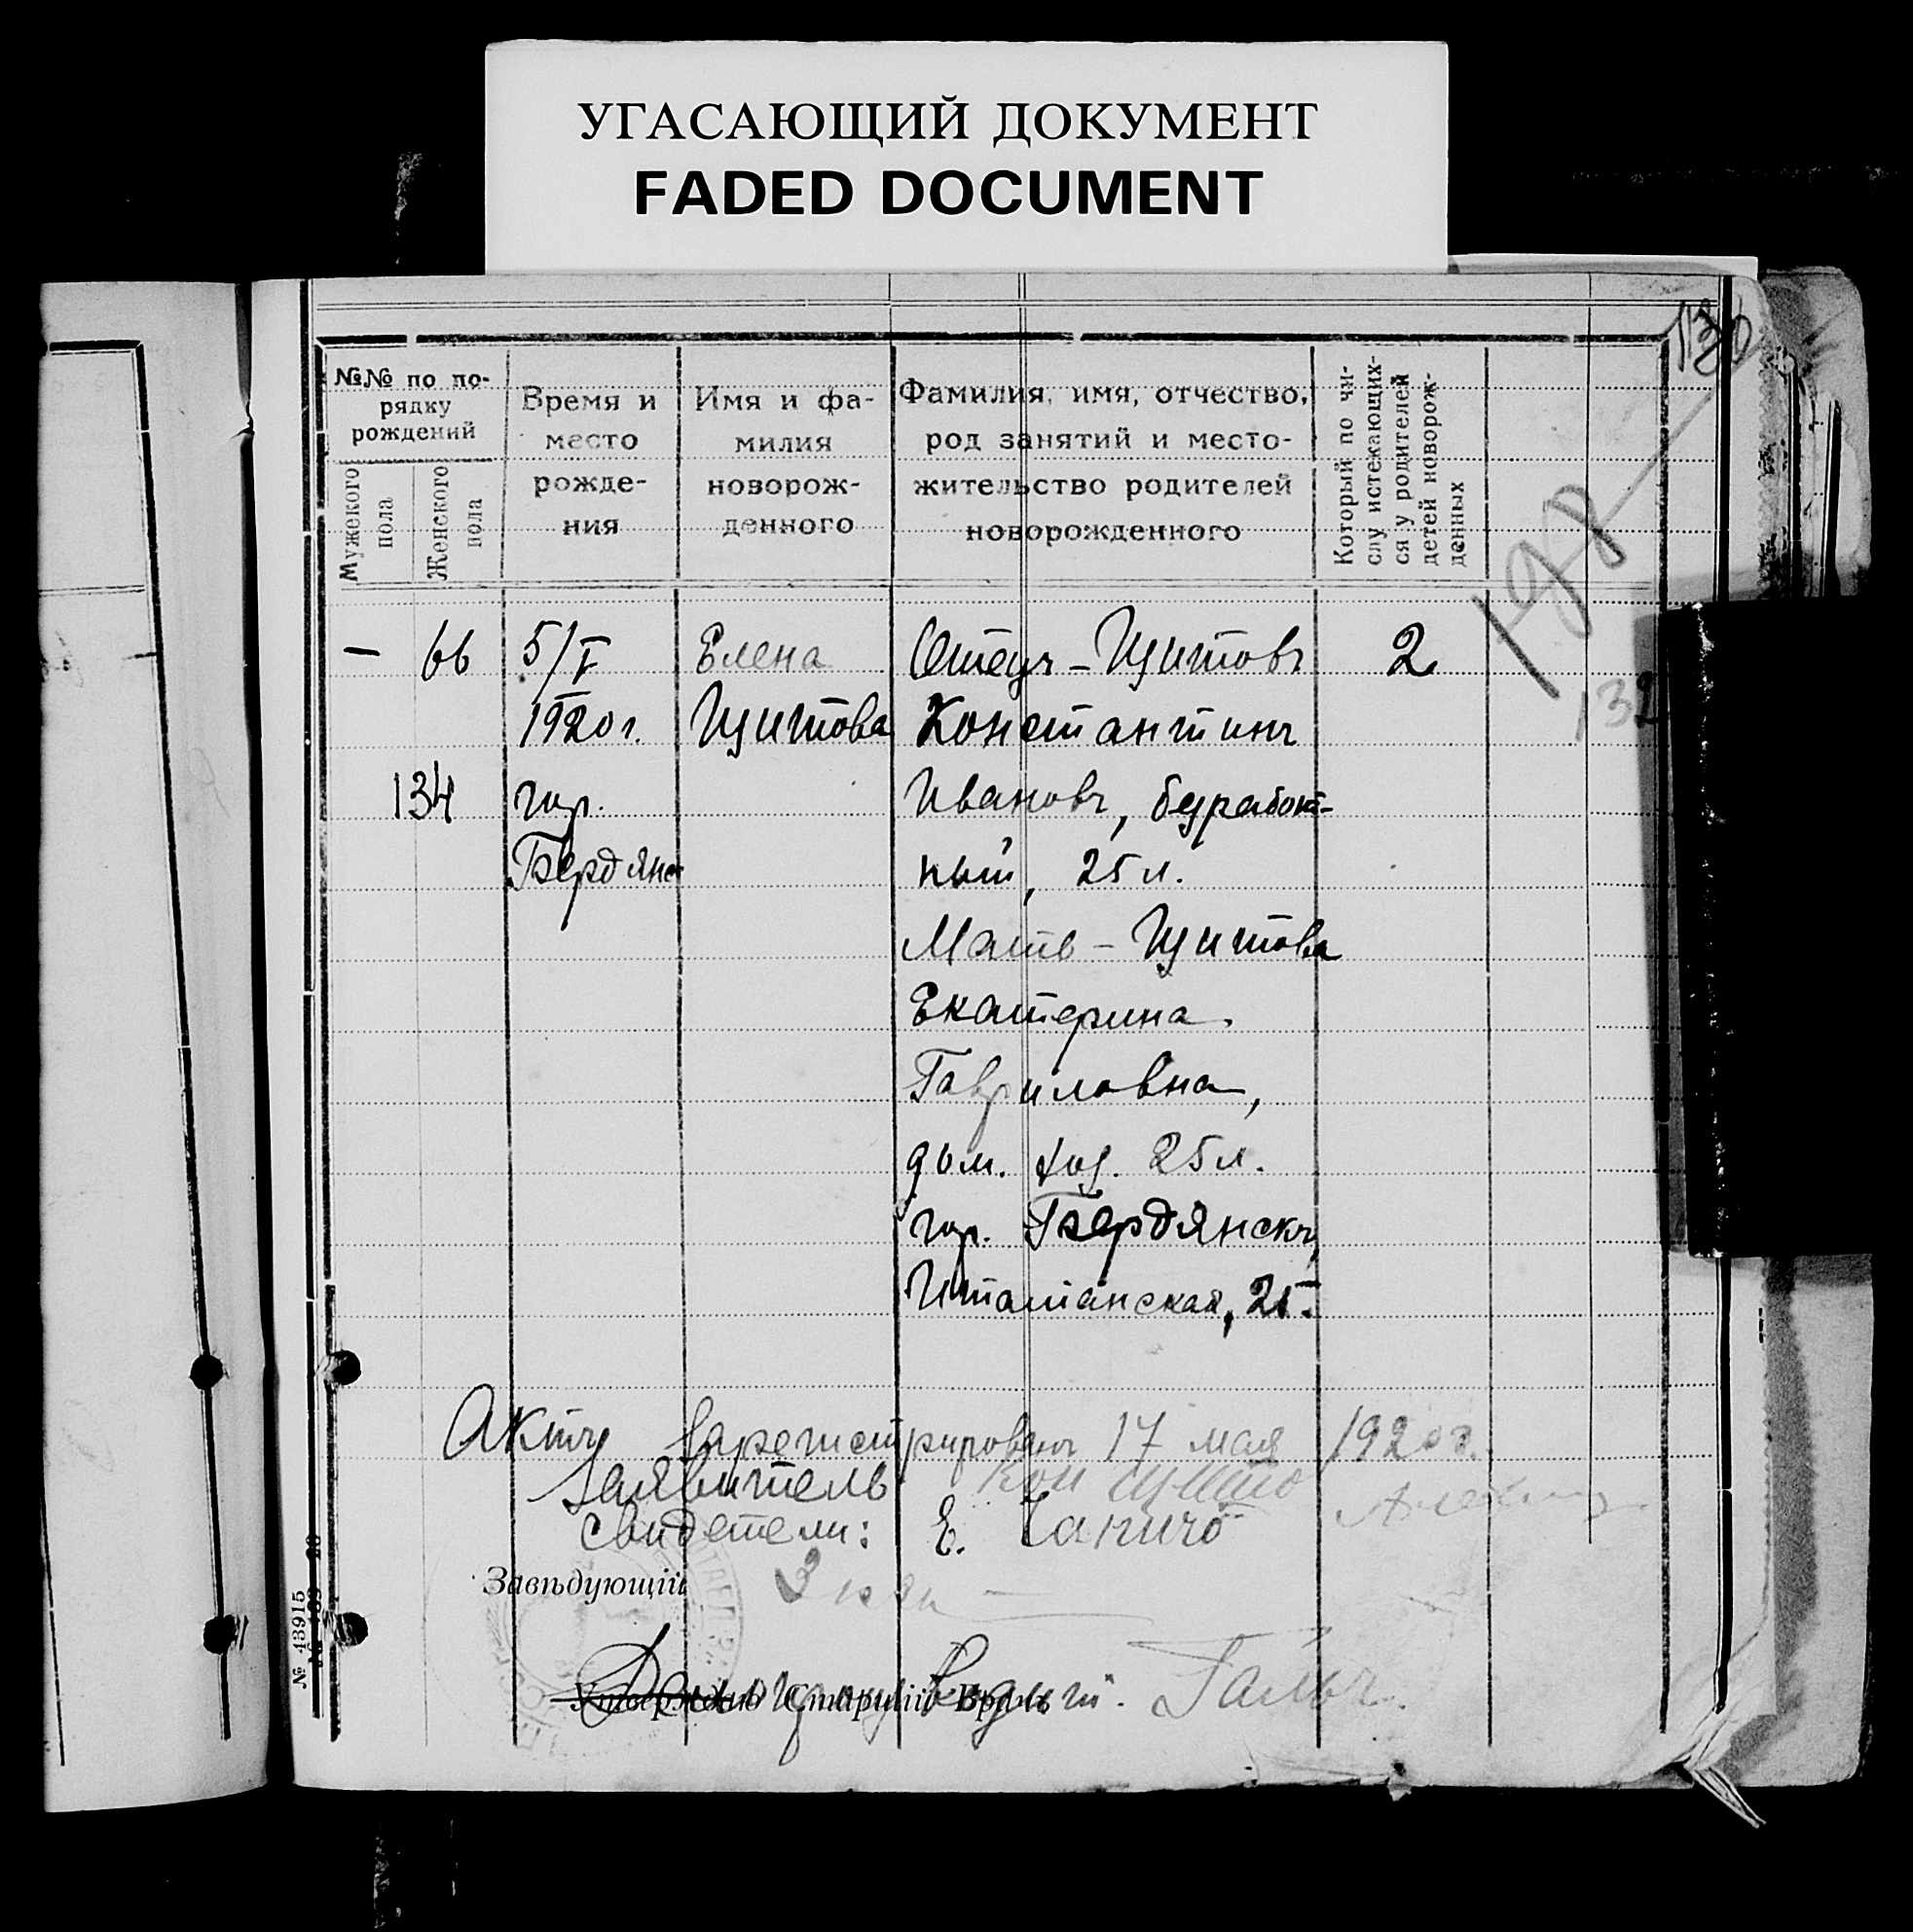 УГАСАЮЩИЙ ДОКУМЕНТ
FADED DOCUMENT
130
№№ по по-
рядку
рождений
Мужского
пола
Женского
пола
Время и
место
рожде-
ния
Имя и фа-
милия
новорож-
денного
Фамилия, имя, отчество,
род занятий и место-
жительство родителей
новорожденного
Который по чи-
слу истекающих-
ся у родителей
детей новорож-
денных
198
132
— 66
134
5/V
1920 г.
гор.
Бердянс
Елена
Щитова
Отецъ – Щитовъ
Константинъ
Ивановъ, безработ-
ный, 25 л.
Мать – Щитова
Екатерина
Гавриловна,
дом. хоз. 25 л.
гор. Бердянскъ,
Италианская, 25.
2
Актъ зарегистрированъ 17 мая 1920 г.
Заявитель Кон Щито
Свидетели: Е.
Завѣдующій
Старшій Врачъ
№ 43915